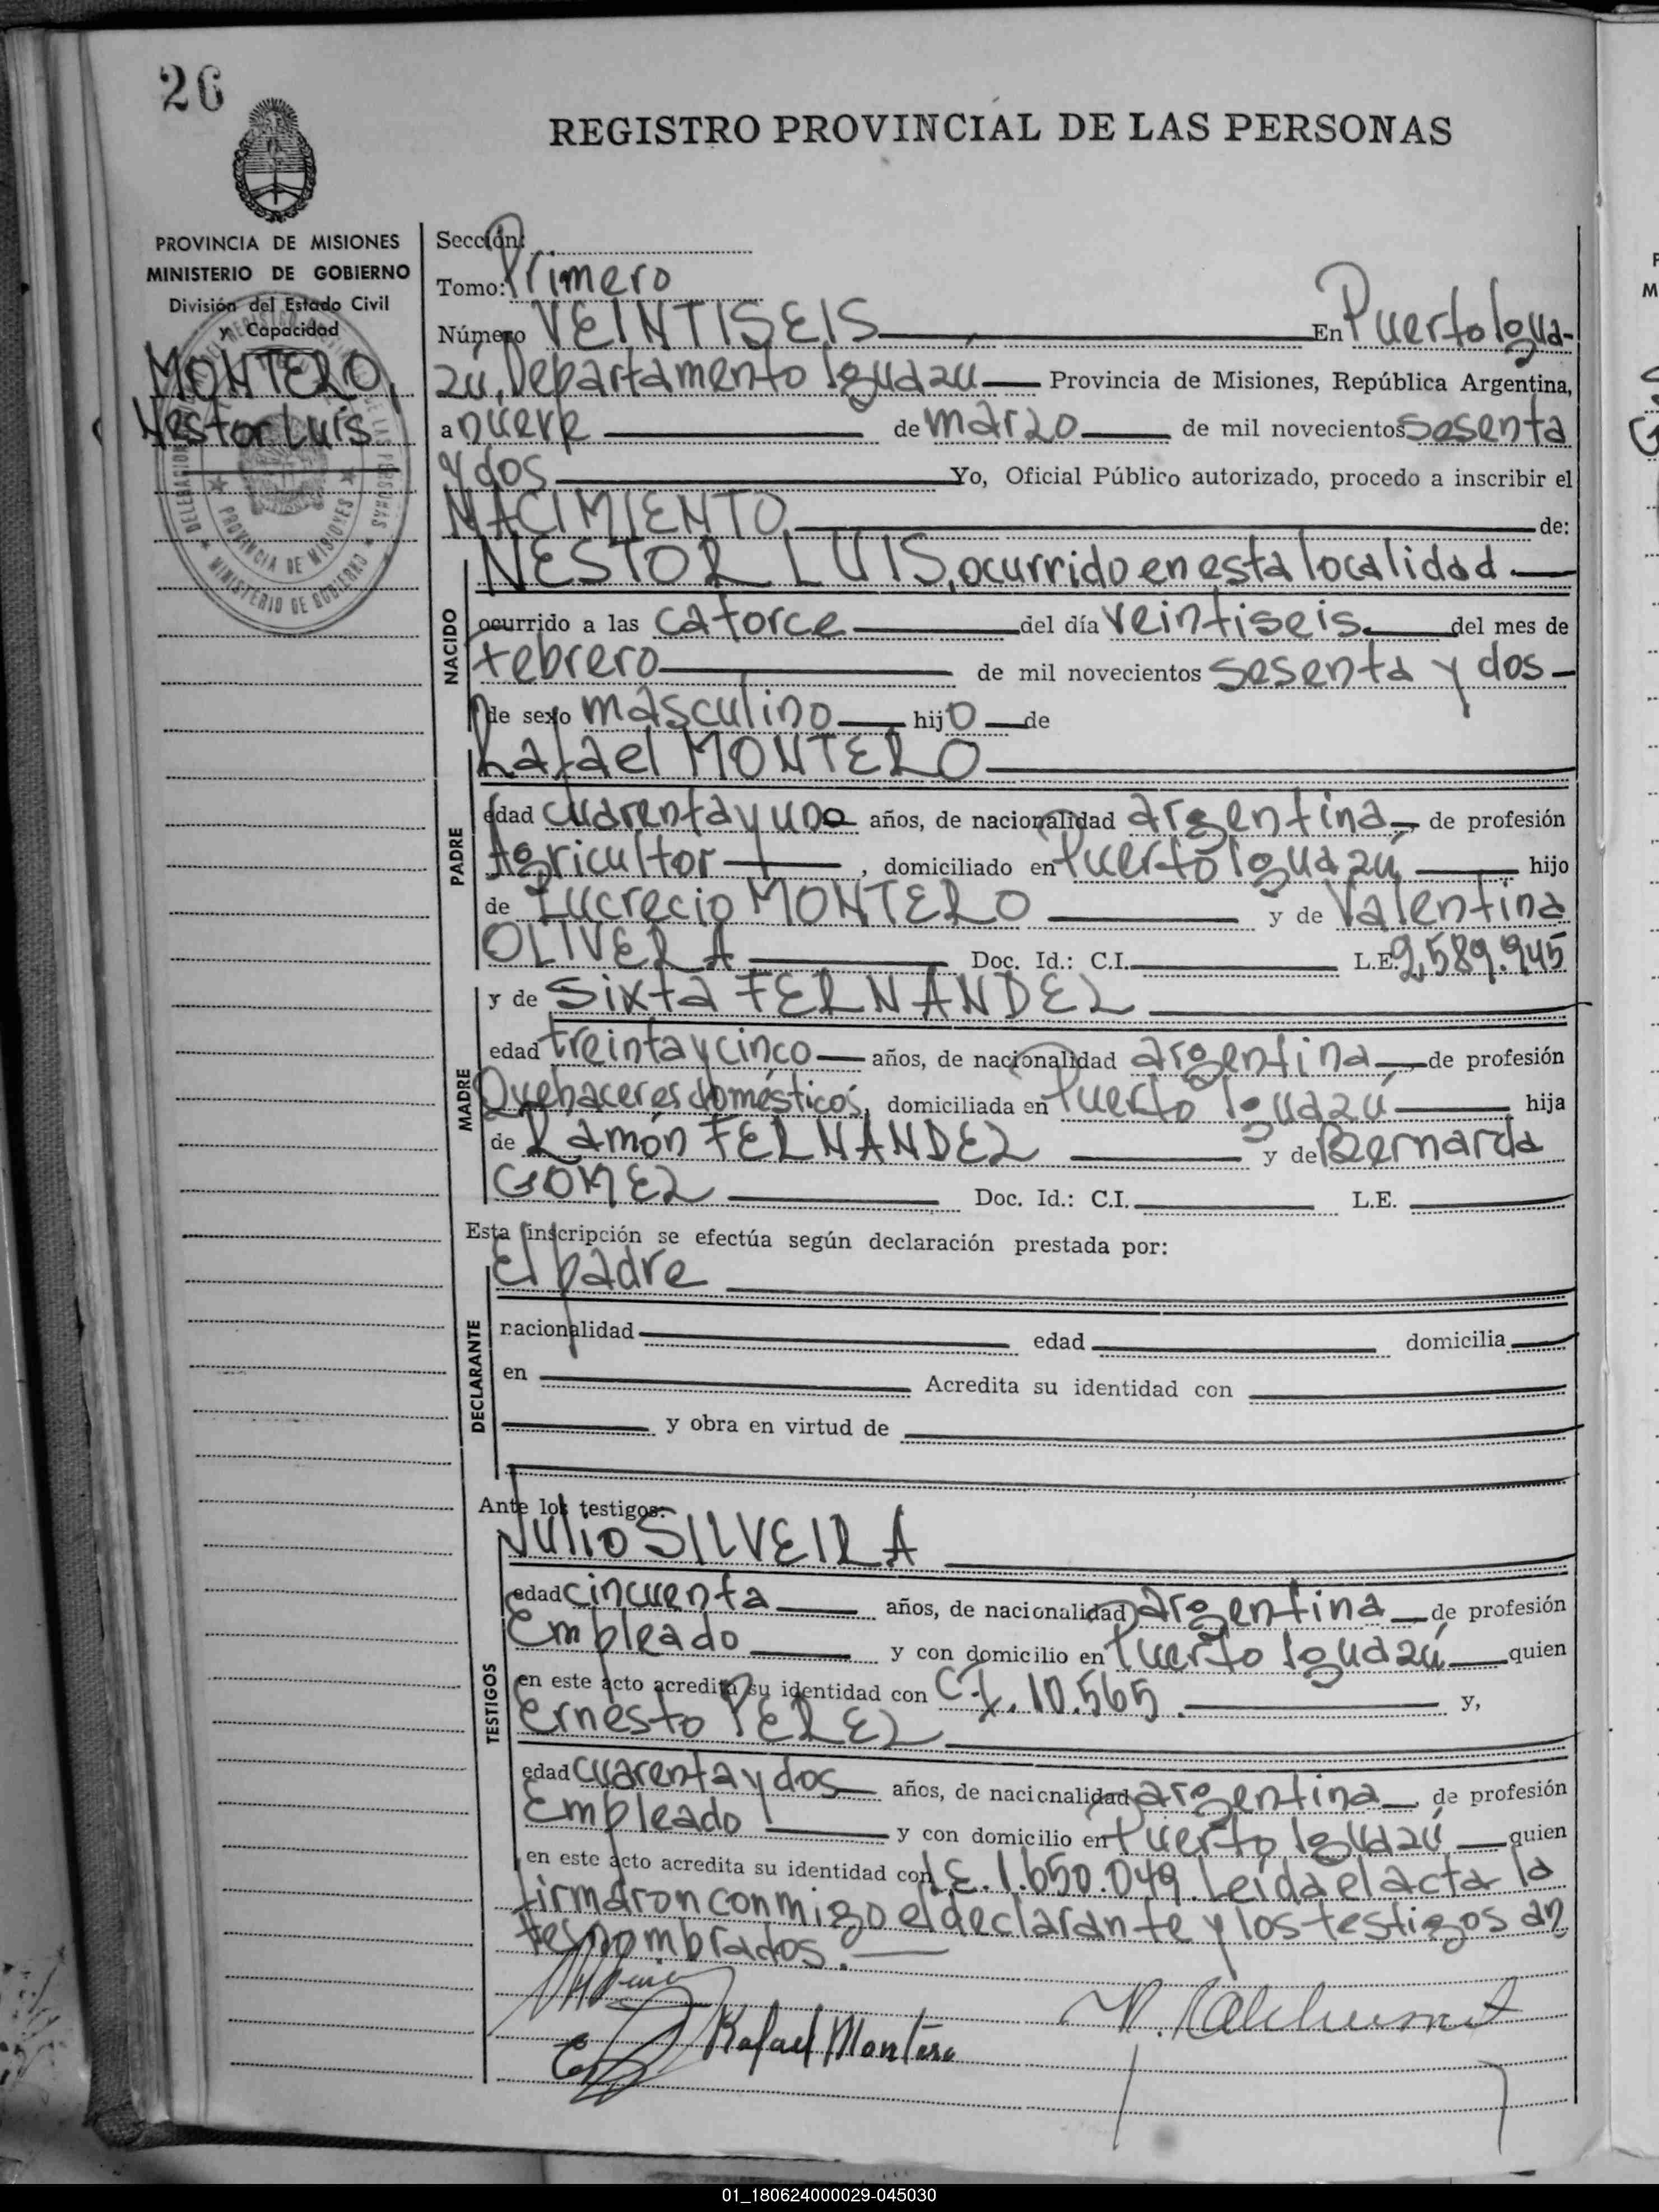 26
REGISTRO PROVINCIAL DE LAS PERSONAS
PROVINCIA DE MISIONES
MINISTERIO DE GOBIERNO
División del Estado Civil
y Capacidad
MONTERO,
Nestor Luis
PROVINCIA DE MISIONES
MINISTERIO DE GOBIERNO
Sección:
Tomo: Primero
Número VEINTISEIS En Puerto Igua-
zú, Departamento Iguazú Provincia de Misiones, República Argentina,
a nueve de marzo de mil novecientos sesenta
y dos Yo, Oficial Público autorizado, procedo a inscribir el
NACIMIENTO de:
NACIDO
NESTOR LUIS, ocurrido en esta localidad
ocurrido a las catorce del día veintiseis del mes de
febrero de mil novecientos sesenta y dos
de sexo masculino hijo de
PADRE
Rafael MONTERO
edad cuarenta y uno años, de nacionalidad argentina, de profesión
Agricultor, domiciliado en Puerto Iguazú, hijo
de Lucrecio MONTERO y de Valentina
OLIVERA Doc. Id.: C.I. L.E. 2.589.945
MADRE
y de Sixta FERNANDEZ
edad treinta y cinco años, de nacionalidad argentina de profesión
Quehaceres domésticos, domiciliada en Puerto Iguazú hija
de Ramón FERNANDEZ y de Bernarda
GOMEZ Doc. Id.: C.I. L.E.
Esta inscripción se efectúa según declaración prestada por:
DECLARANTE
El padre
nacionalidad edad domicilia
en Acredita su identidad con
y obra en virtud de
Ante los testigos:
TESTIGOS
Julio SILVEIRA
edad cincuenta años, de nacionalidad argentina de profesión
Empleado y con domicilio en Puerto Iguazú quien
en este acto acredita su identidad con C.I. 10.565. y,
Ernesto PEREZ
edad cuarenta y dos años, de nacionalidad argentina de profesión
Empleado y con domicilio en Puerto Iguazú quien
en este acto acredita su identidad con L.E. 1.650.049. Leída el acta la
firmaron conmigo el declarante y los testigos an
tes nombrados.
Rafael Montero
01_180624000029-045030